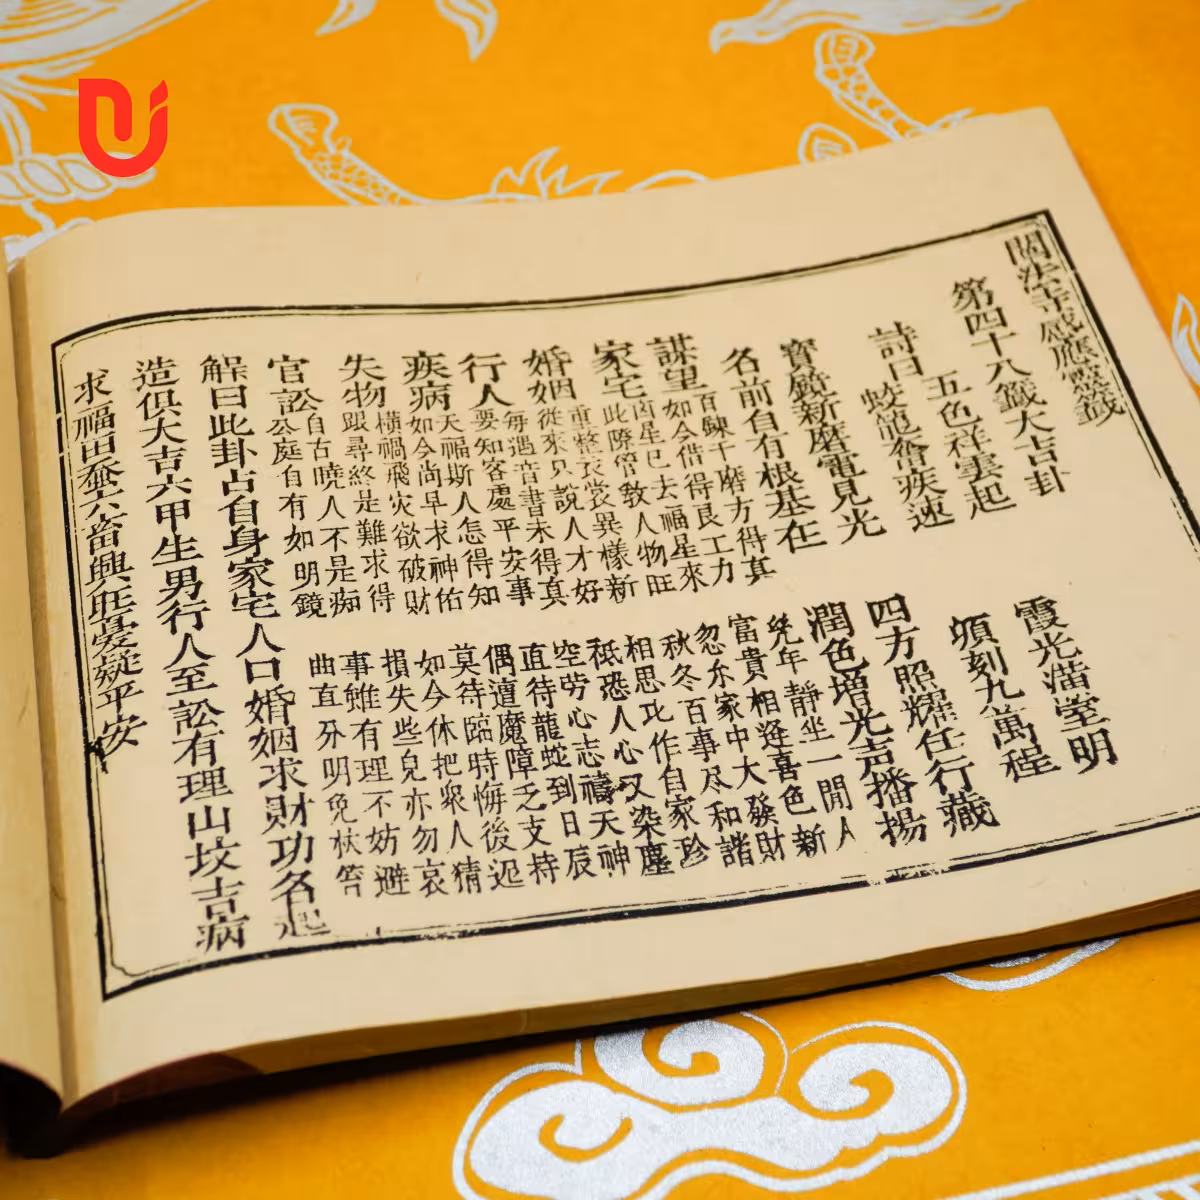 闍法寺感應靈籤
第四十八籤大吉卦
五色祥雲起 霞光滿室明
詩曰 蛟龍奮疾速 頃刻九萬程
寶鏡新磨電見光 四方照耀任行藏
名前自有根基在 潤色增光声播揚
謀望 百鍊千磨方得真 凭年靜坐一閒人
如今借得良工力 富貴相逢喜色新
家宅 凶星已去福星來 忽尔家中大發財
此際管教人物旺 秋冬百事尽和諧
婚姻 重整衣裳異樣新 相思比作自家珍
從來只說人才好 祗恐人心又染塵
行人 每遇音書未得真 空劳心志禱天神
要知客處平安事 直待龍蛇到日辰
疾病 天福斯人怎得知 偶遭魔障乏支持
如今尚早求神佑 莫待臨時悔後迟
失物 橫禍飛灾欲破財 如今休把衆人猜
跟尋終是難求得 損失些兒亦勿哀
官訟 自古曉人不是痴 事雖有理不妨避
公庭自有如明鏡 曲直分明免杖笞
解曰此卦占自身家宅人口婚姻求財功名起
造俱大吉六甲生男行人至訟有理山坟吉病
求福田蚕六畜興旺憂疑平安